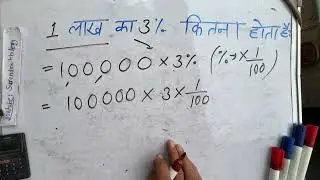 1 लाख का 3% कितना होता है
= 100,000 × 3% (% → × 1/100)
= 100000 × 3 × 1/100